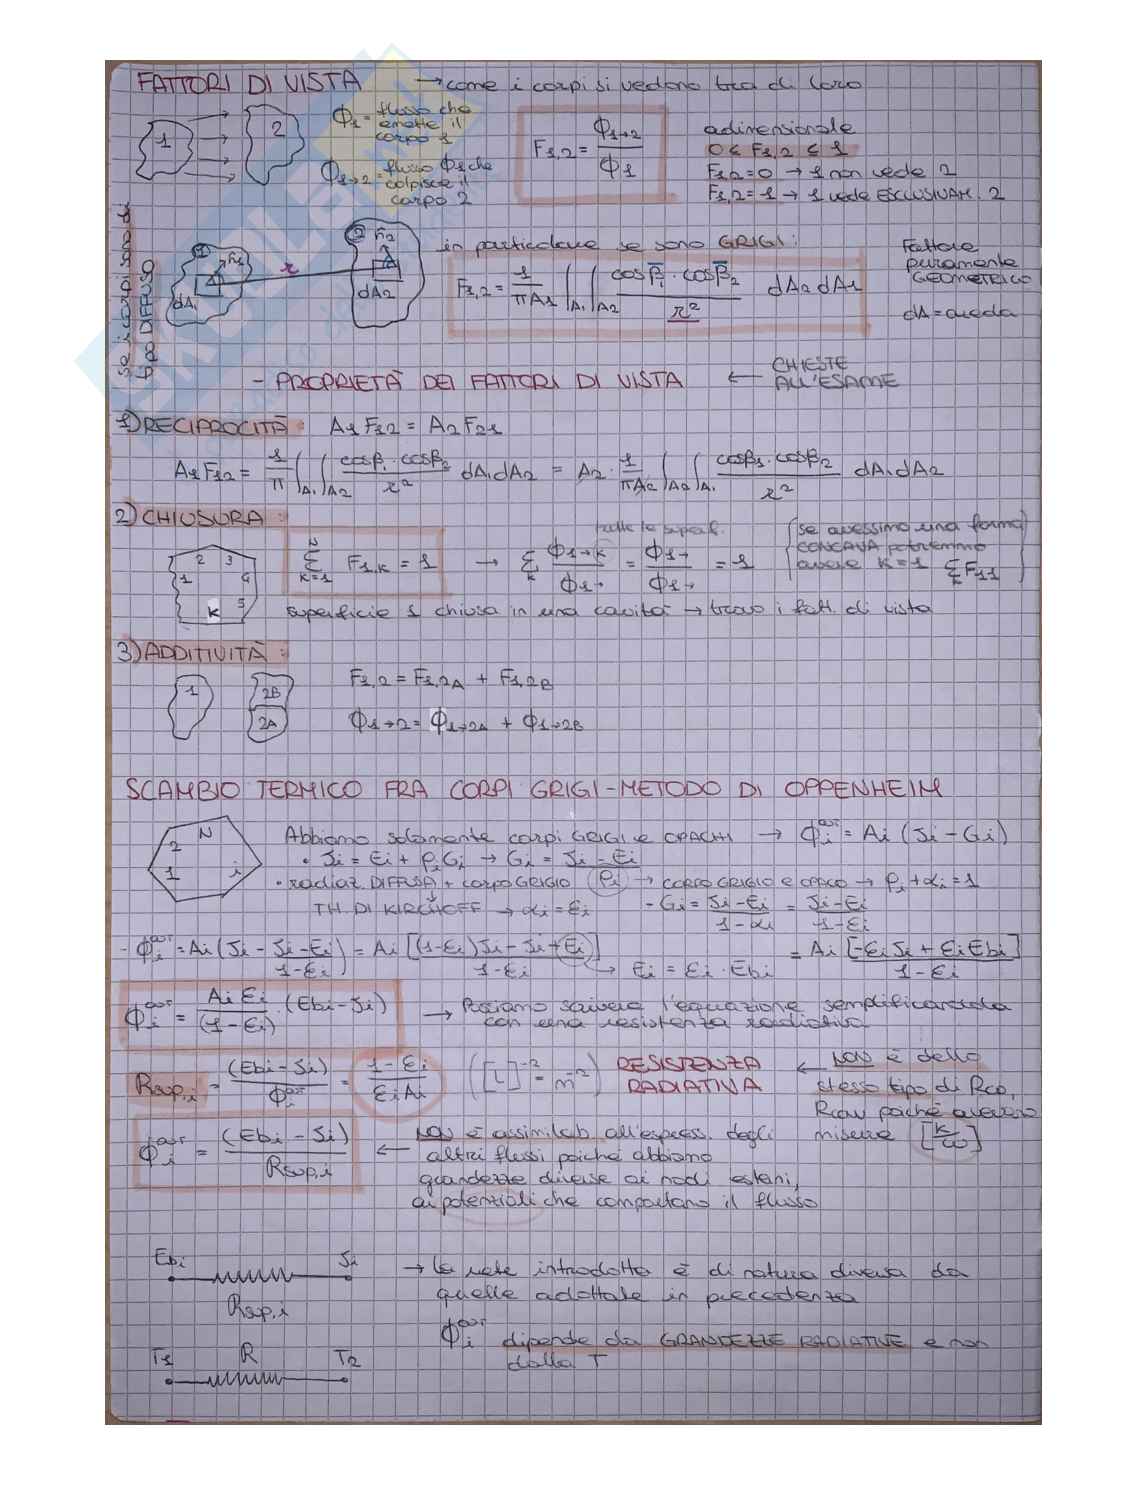 FATTORI DI VISTA → come i corpi si vedono tra di loro
1 2
Φ1 = flusso che emette il corpo 1
Φ1→2 = flusso Φ1 che colpisce il corpo 2
F1,2 = Φ1→2 / Φ1
adimensionale
0 ≤ F1,2 ≤ 1
F1,2 = 0 → 1 non vede 2
F1,2 = 1 → 1 vede ESCLUSIVAM. 2
se i corpi son di tipo DIFFUSO
1 n1 dA1 r 2 n2 dA2
in particolare se sono GRIGI:
F1,2 = 1/πA1 ∫A1 ∫A2 cosβ1 · cosβ2 / r² dA2 dA1
Fattore puramente GEOMETRICO
dA = areola
- PROPRIETÀ DEI FATTORI DI VISTA ← CHIESTE ALL'ESAME
1) RECIPROCITÀ: A1 F12 = A2 F21
A1 F12 = 1/π ∫A1 ∫A2 cosβ1 · cosβ2 / r² dA1 dA2 = A2 · 1/πA2 ∫A2 ∫A1 cosβ1 · cosβ2 / r² dA1 dA2
2) CHIUSURA:
1 2 3 4 5 K
N Σ K=1 F1,K = 1 → Σ K Φ1→K / Φ1→ = Φ1→ / Φ1→ = 1
tutte le superf.
(se avessimo una forma CONCAVA potremmo avere K=1 Σ K F11)
superficie 1 chiusa in una cavità → trovo i fatt. di vista
3) ADDITIVITÀ:
1 2B 2A
F1,2 = F1,2A + F1,2B
Φ1→2 = Φ1→2A + Φ1→2B
SCAMBIO TERMICO FRA CORPI GRIGI - METODO DI OPPENHEIM
N 2 1 i
Abbiamo solamente corpi GRIGI e OPACHI → Φi = Ai (Ji - Gi)
• Ji = Ei + ρiGi → Gi = Ji - Ei / ρi
• radiaz. DIFFUSA + corpo GRIGIO → CORPO GRIGIO e OPACO → ρi + αi = 1
TH. DI KIRCHOFF → αi = εi
- Gi = Ji - Ei / 1 - αi = Ji - Ei / 1 - εi
- Φi = Ai (Ji - Ji - Ei / 1 - εi) = Ai [(1 - εi)Ji - Ji + Ei] / 1 - εi = Ai [-εiJi + εiEbi] / 1 - εi
→ Ei = εi · Ebi
Φi = Ai εi / (1 - εi) · (Ebi - Ji) → Possiamo scrivere l'equazione semplificandola
con una resistenza radiativa
Rsup,i = (Ebi - Ji) / Φi = 1 - εi / εi Ai ([L]⁻² = m⁻²) RESISTENZA RADIATIVA
← NON è dello stesso tipo di Rco, Rconv poiché avevano misure [K/W]
Φi = (Ebi - Ji) / Rsup,i ← NON è assimilab. all'espress. degli
altri flussi poiché abbiamo
grandezze diverse ai nodi esterni,
ai potenziali che comportano il flusso
Ebi Ji
Rsup,i
→ la rete introdotta è di natura diversa da
quelle adottate in precedenza
Φi dipende da GRANDEZZE RADIATIVE e non
dalla T
T1 R T2